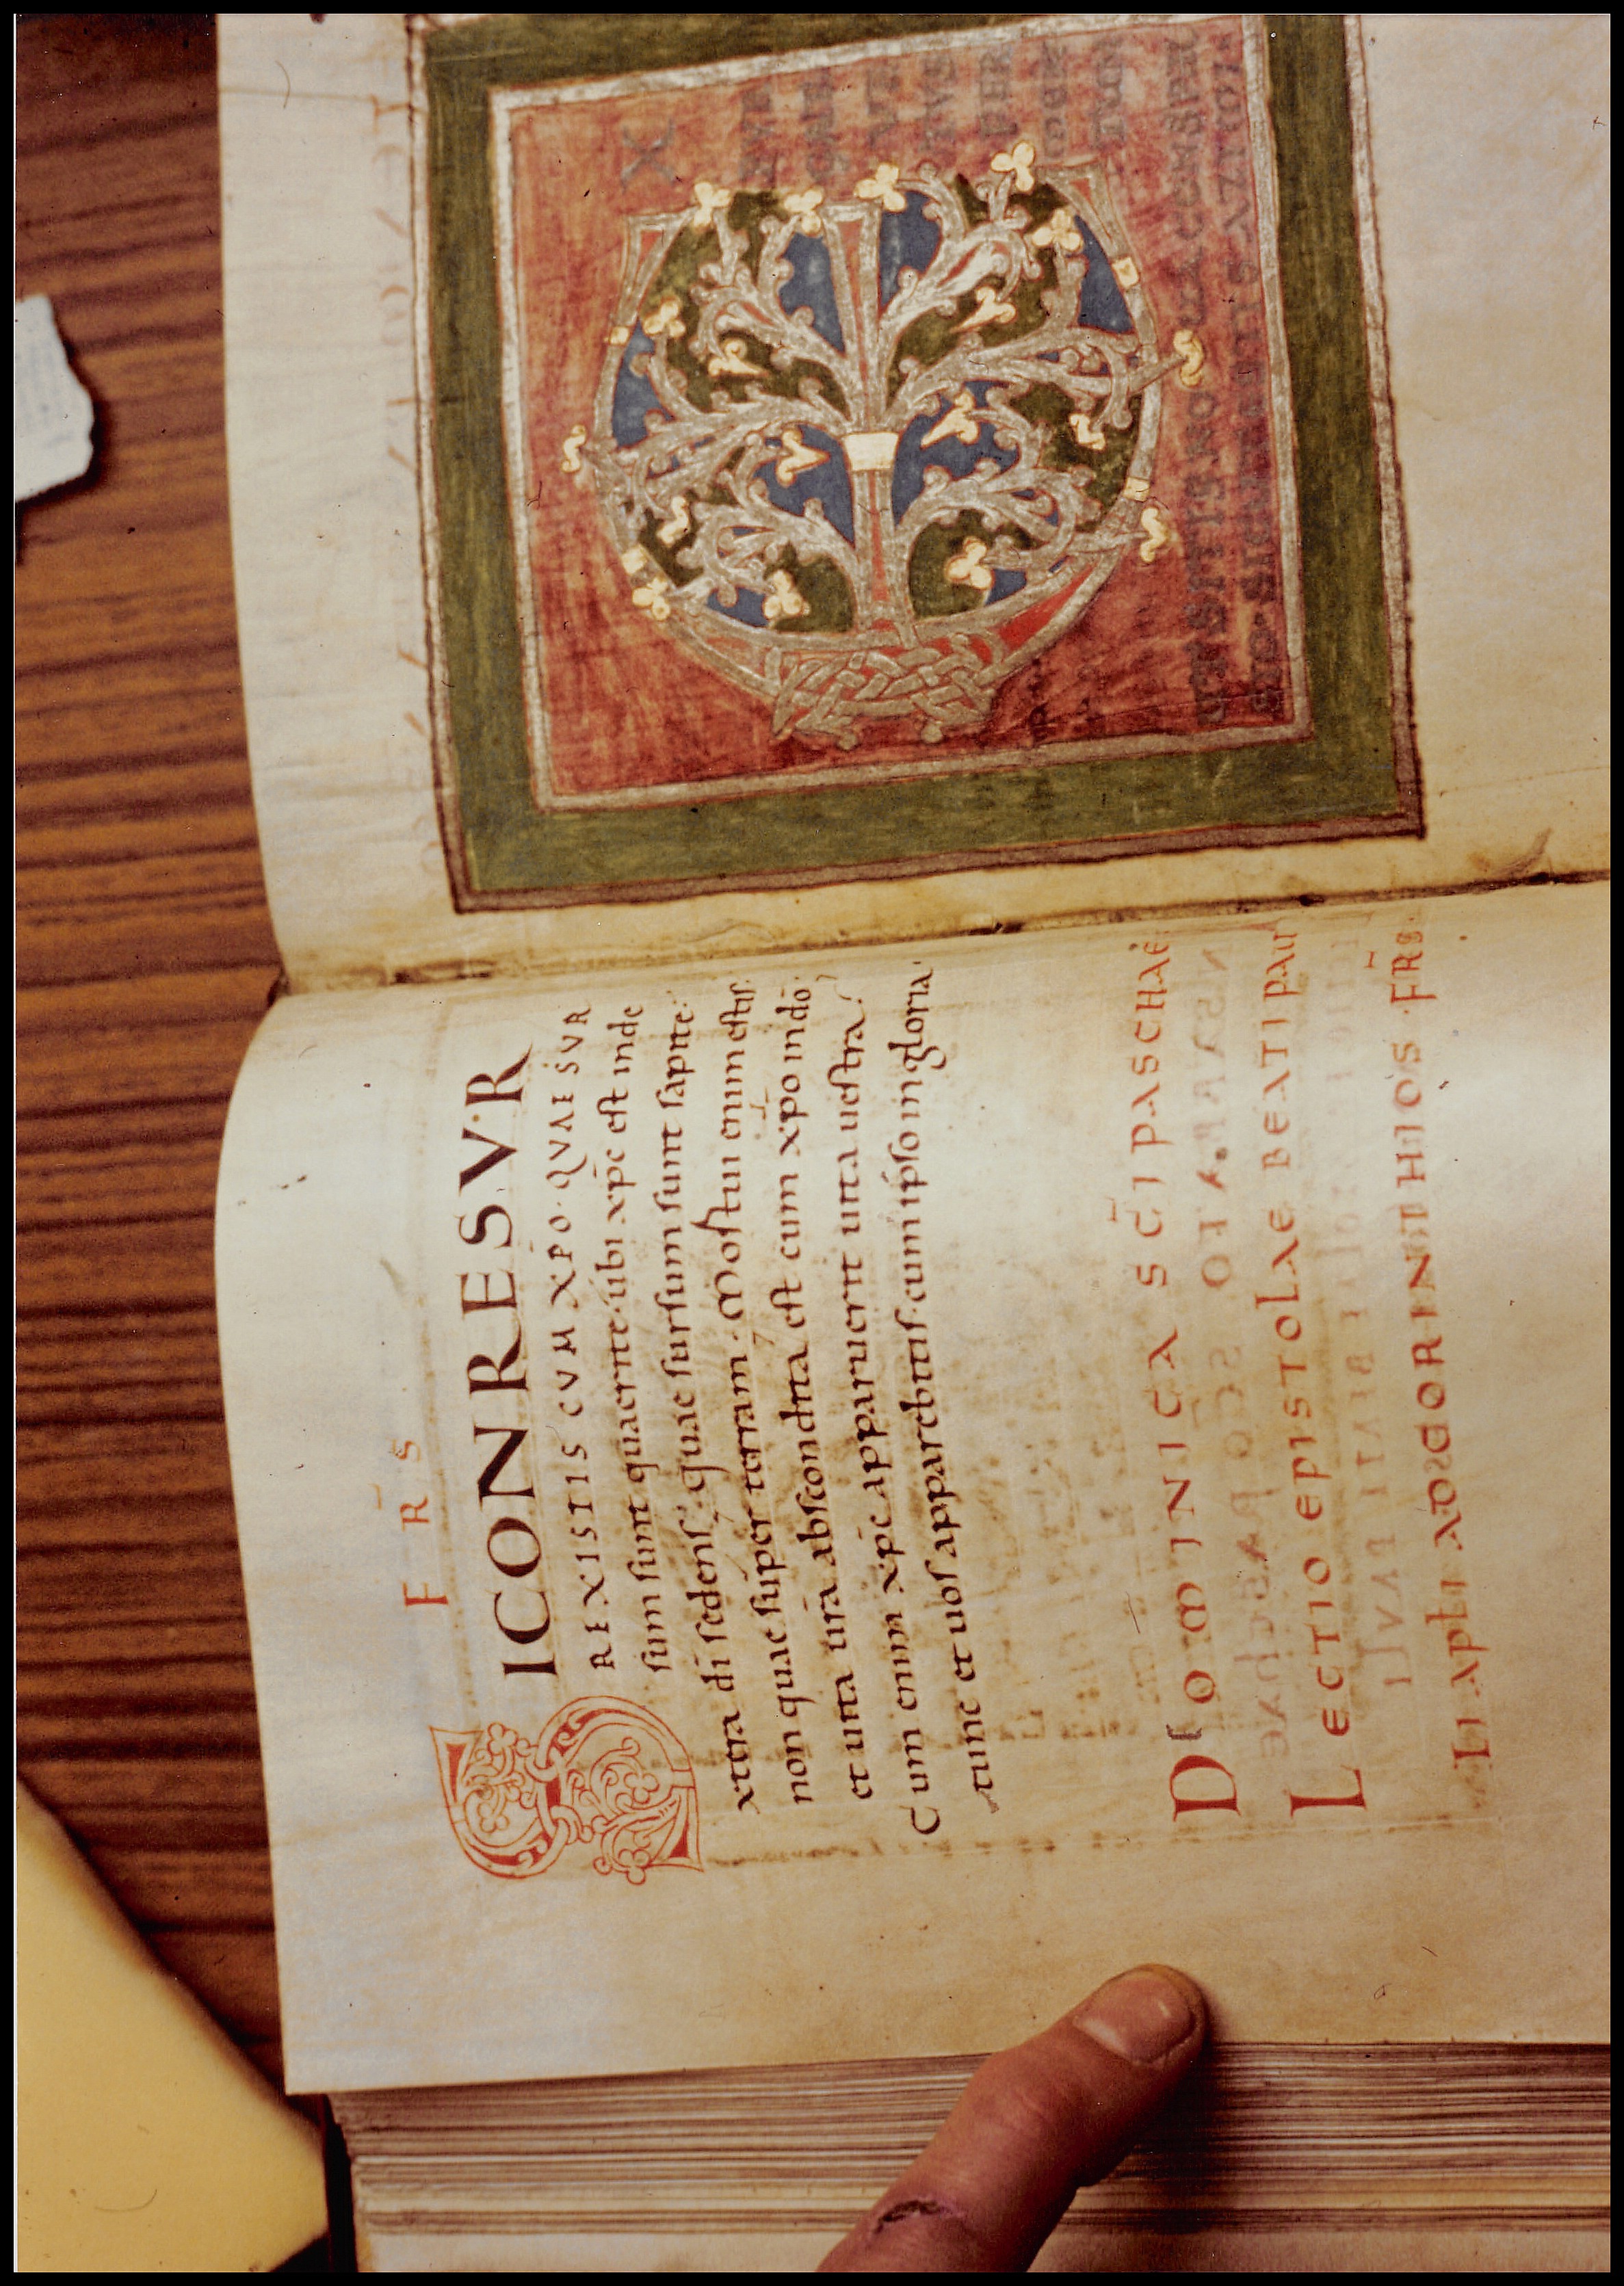 F R̄ S
SICONRESVR
REXISTIS CVM XP̄O· QVAE SVR
sum sunt quaerite· ubi xp̄c est inde
xtera dī sedens·; quae sursum sunt sapite·
non quae super terram· Mortui enim estis·
et uita ur̄a abscondita est cum xp̄o in dō·
Cum enim xp̄c apparuerit uita uestra·
tunc et uos apparebitis· cum ipso in gloria·
DOMINICA SC̄I PASCHAE
LECTIO EPISTOLAE BEATI PAU
LI APLI AD CORINTHIOS· FR̄S·